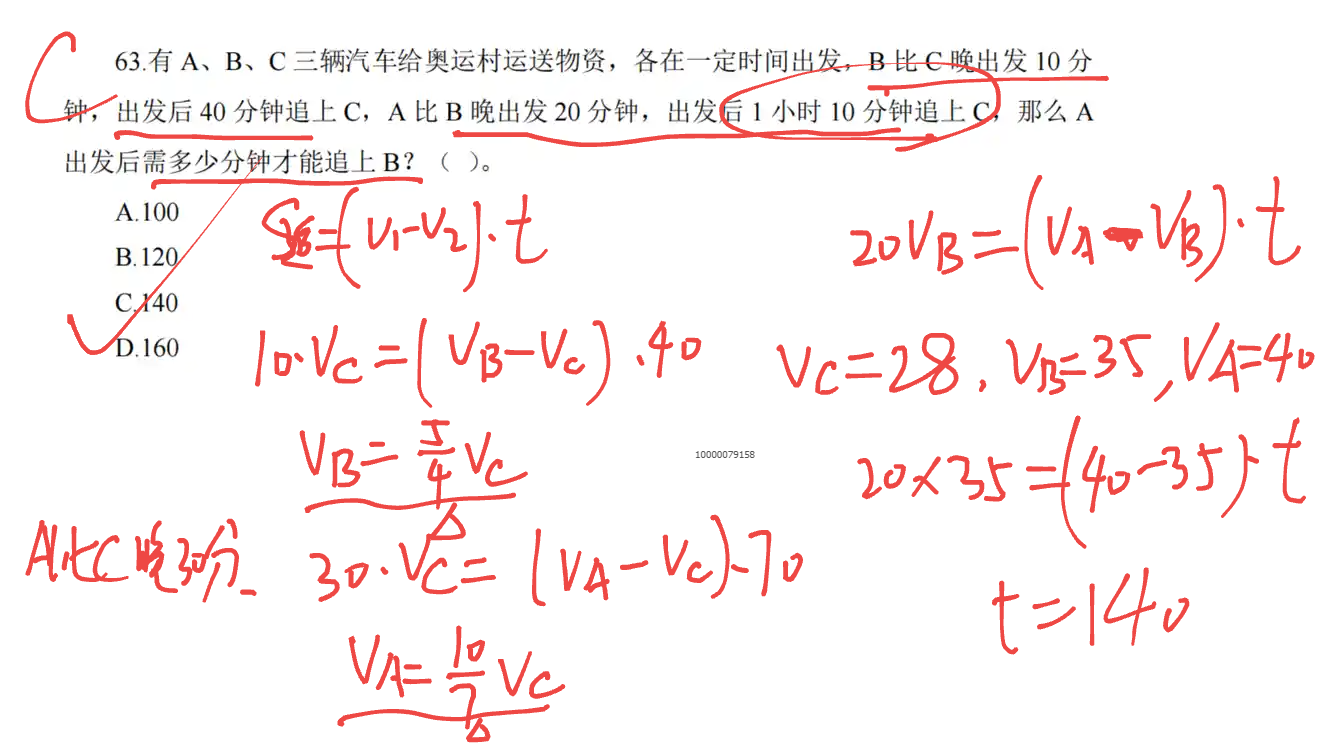 C
63.有 A、B、C 三辆汽车给奥运村运送物资，各在一定时间出发，B 比 C 晚出发 10 分
钟，出发后 40 分钟追上 C，A 比 B 晚出发 20 分钟，出发后 1 小时 10 分钟追上 C，那么 A
出发后需多少分钟才能追上 B？（ ）。
A.100
B.120
C.140
D.160
S路=(V1-V2)·t
10·VC=(VB-VC)·40
VB=5/4 VC
A比C晚30分
30·VC=(VA-VC)·70
VA=10/7 VC
20VB=(VA-VB)·t
VC=28，VB=35，VA=40
20×35=(40-35)·t
t=140
10000079158